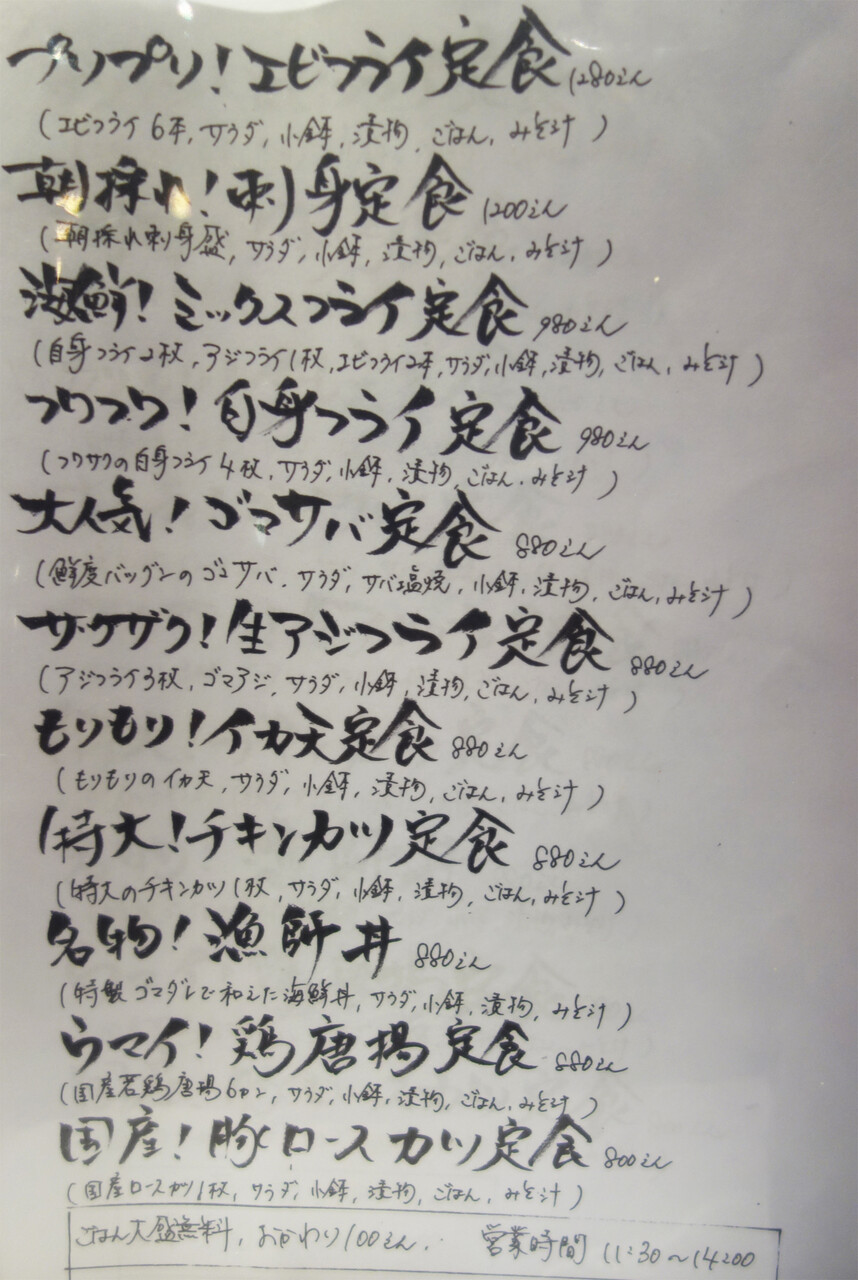 プリプリ！エビフライ定食 1280えん
(エビフライ6本, サラダ, 小鉢, 漬物, ごはん, みそ汁)
朝採れ！刺身定食 1200えん
(朝採れ刺身盛, サラダ, 小鉢, 漬物, ごはん, みそ汁)
海鮮！ミックスフライ定食 980えん
(白身フライ2枚, アジフライ1枚, エビフライ2本, サラダ, 小鉢, 漬物, ごはん, みそ汁)
フワフワ！白身フライ定食 980えん
(フワサクの白身フライ4枚, サラダ, 小鉢, 漬物, ごはん, みそ汁)
大人気！ゴマサバ定食 880えん
(鮮度バツグンのゴマサバ, サラダ, サバ塩焼, 小鉢, 漬物, ごはん, みそ汁)
ザクザク！生アジフライ定食 880えん
(アジフライ3枚, ゴマアジ, サラダ, 小鉢, 漬物, ごはん, みそ汁)
もりもり！イカ天定食 880えん
(もりもりのイカ天, サラダ, 小鉢, 漬物, ごはん, みそ汁)
特大！チキンカツ定食 880えん
(特大のチキンカツ1枚, サラダ, 小鉢, 漬物, ごはん, みそ汁)
名物！漁師丼 880えん
(特製ゴマダレで和えた海鮮丼, サラダ, 小鉢, 漬物, みそ汁)
ウマイ！鶏唐揚定食 880えん
(国産若鶏唐揚6カン, サラダ, 小鉢, 漬物, ごはん, みそ汁)
国産！豚ロースカツ定食 800えん
(国産ロースカツ1枚, サラダ, 小鉢, 漬物, ごはん, みそ汁)
ごはん大盛無料, おかわり100えん. 営業時間 11:30〜14:00